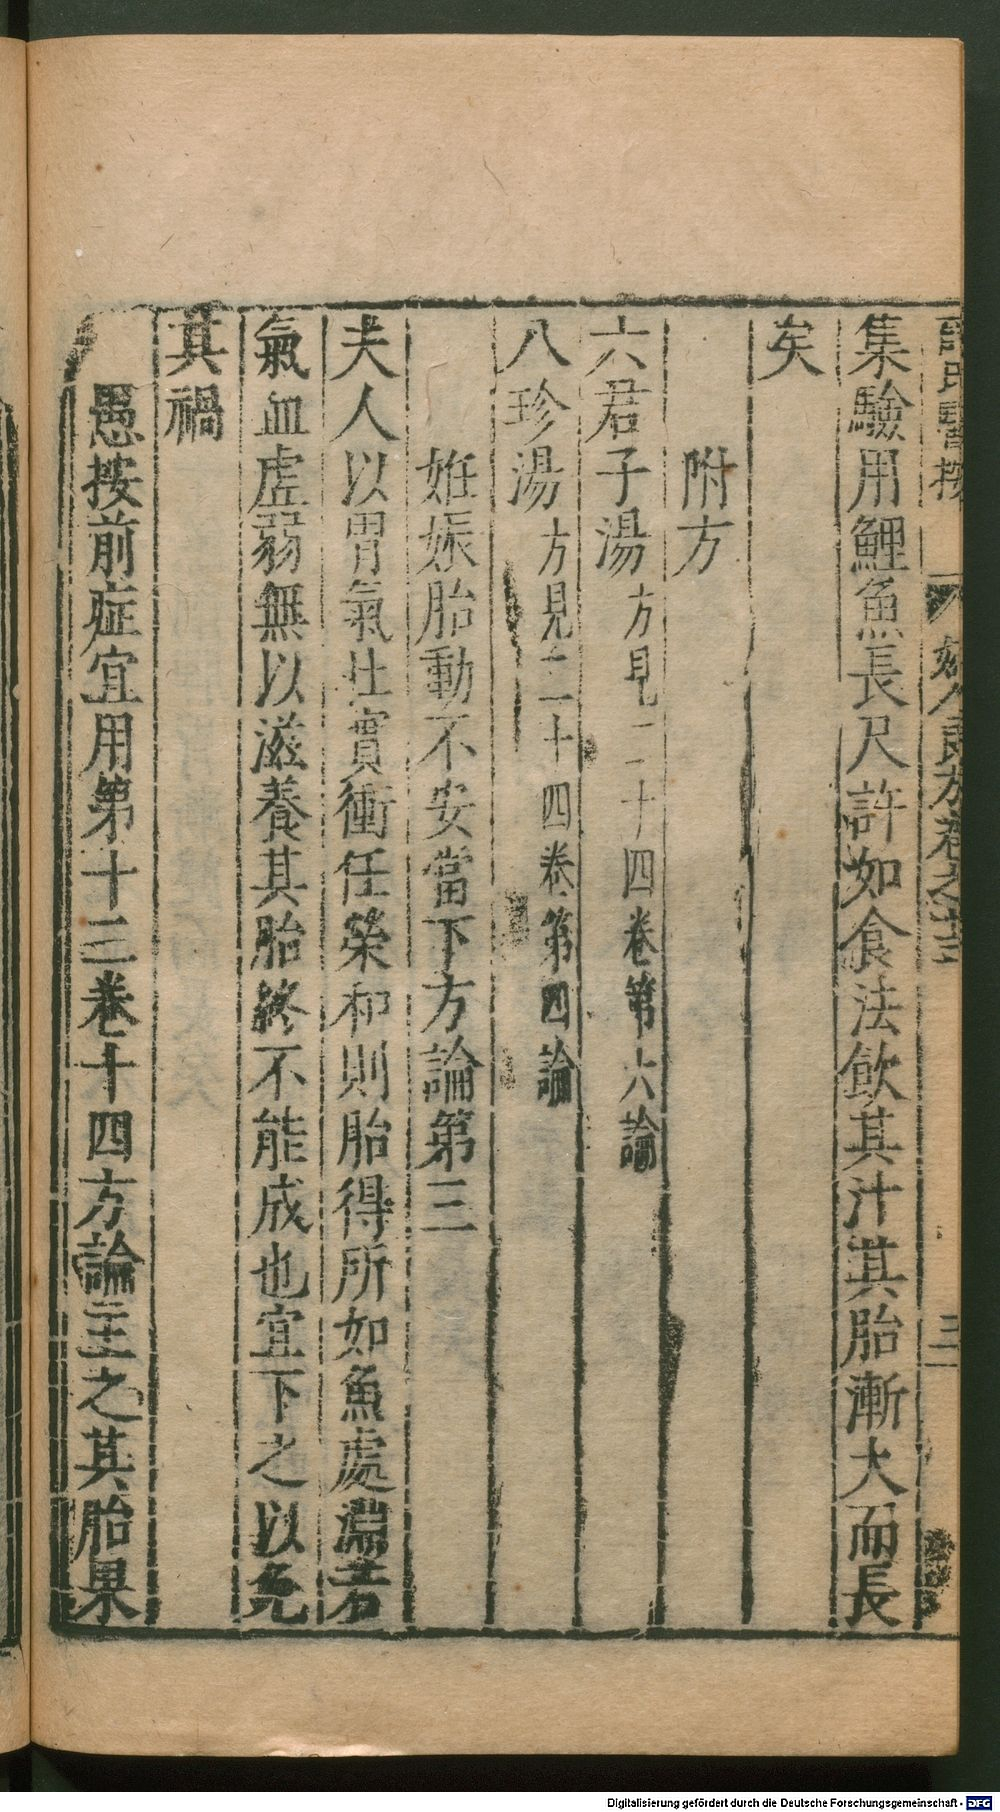 薛氏醫按 婦人良方卷之十三 三
集驗用鯉魚長尺許如食法飲其汁其胎漸大而長
矣
附方
六君子湯方見二十四卷第六論
八珍湯方見二十四卷第四論
姙娠胎動不安當下方論第三
夫人以胃氣壯實衝任榮和則胎得所如魚處淵若
氣血虛弱無以滋養其胎終不能成也宜下之以免
其禍
愚按前症宜用第十三卷十四方論主之其胎果
Digitalisierung gefördert durch die Deutsche Forschungsgemeinschaft - DFG